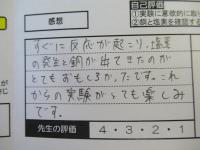 感想
自己評価
①実験に意欲的に取り
②銅と塩素を確認する
すぐに反応が起こり、塩素
の発生と銅が出てきたのが
とてもおもしろかったです。これ
からの実験がとても楽しみ
です。
先生の評価
4・3・2・1